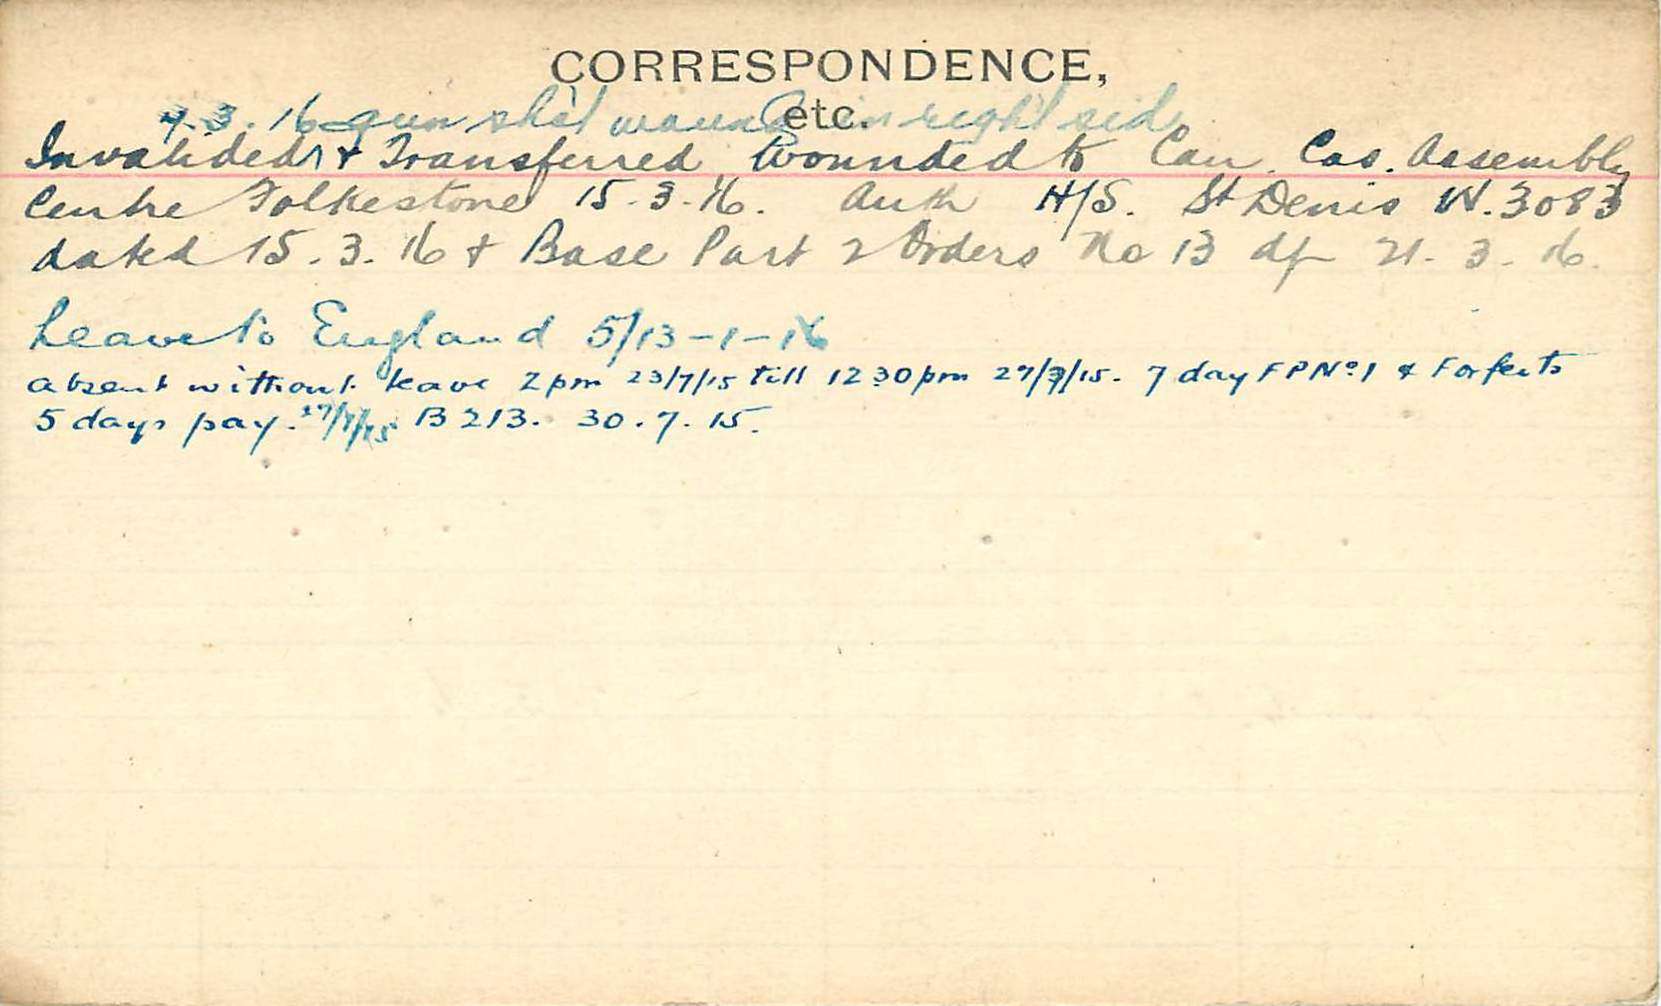 CORRESPONDENCE,
etc.
7.3.16 gun shot wound in right side
Invalided & Transferred Wounded to Can. Cas. Assembly
Centre Folkestone 15.3.16. Auth H/S. St Denis W.3083
dated 15.3.16 & Base Part 2 Orders No 13 df 21.3.16.
Leave to England 5/13-1-16
absent without leave 2pm 23/7/15 till 12 30pm 27/7/15. 7 day FP No 1 & Forfeits
5 days pay. 27/7/15 B213. 30.7.15.